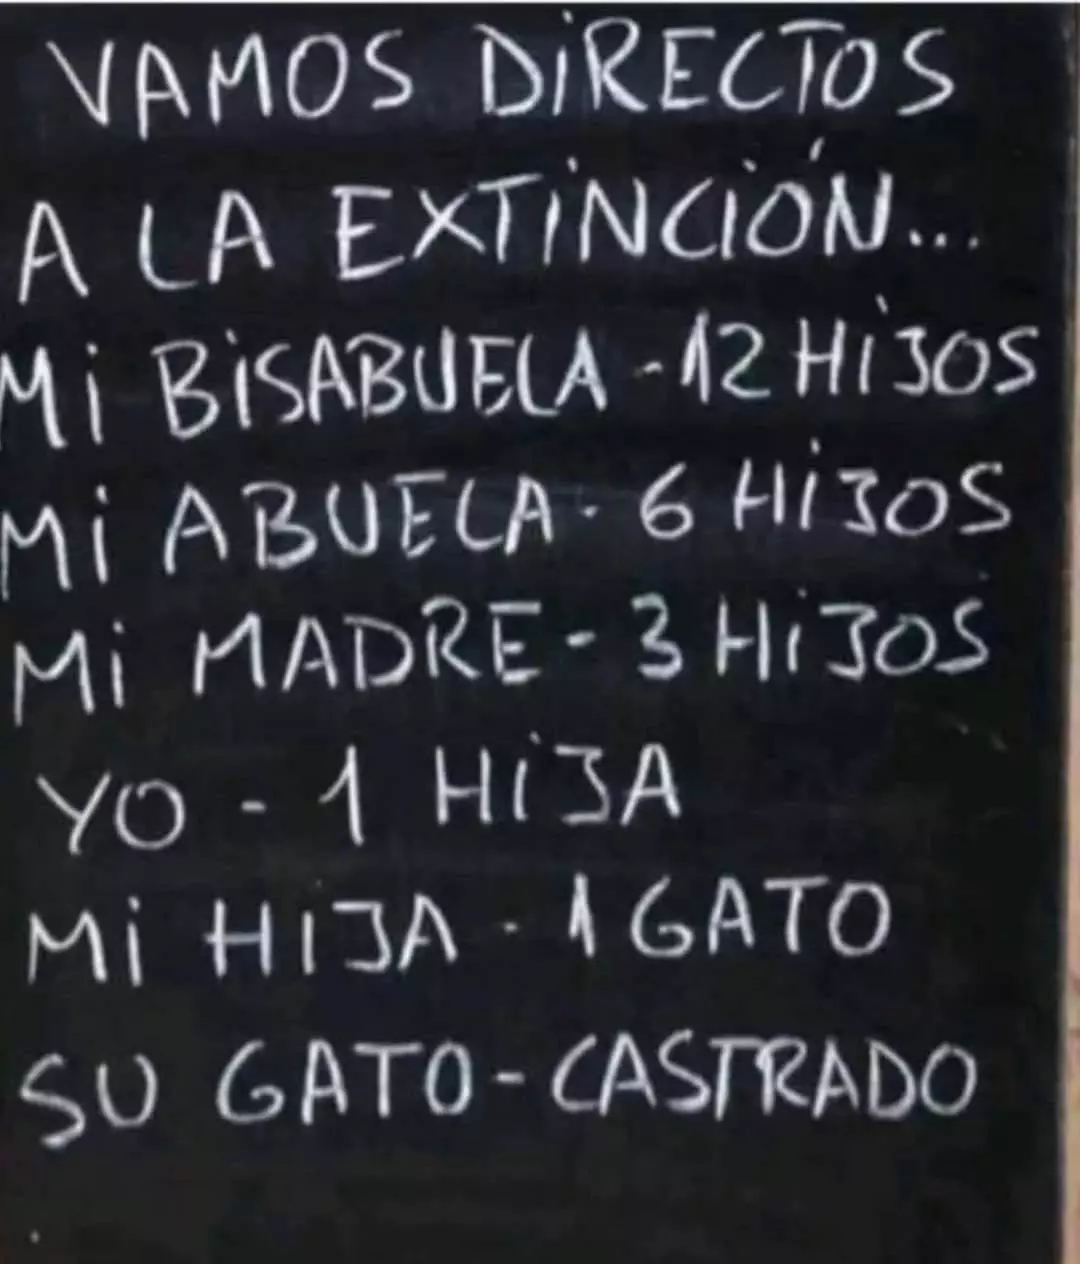 VAMOS DIRECTOS
A LA EXTINCIÓN...
MI BISABUELA - 12 HIJOS
MI ABUELA - 6 HIJOS
MI MADRE - 3 HIJOS
YO - 1 HIJA
MI HIJA - 1 GATO
SU GATO - CASTRADO